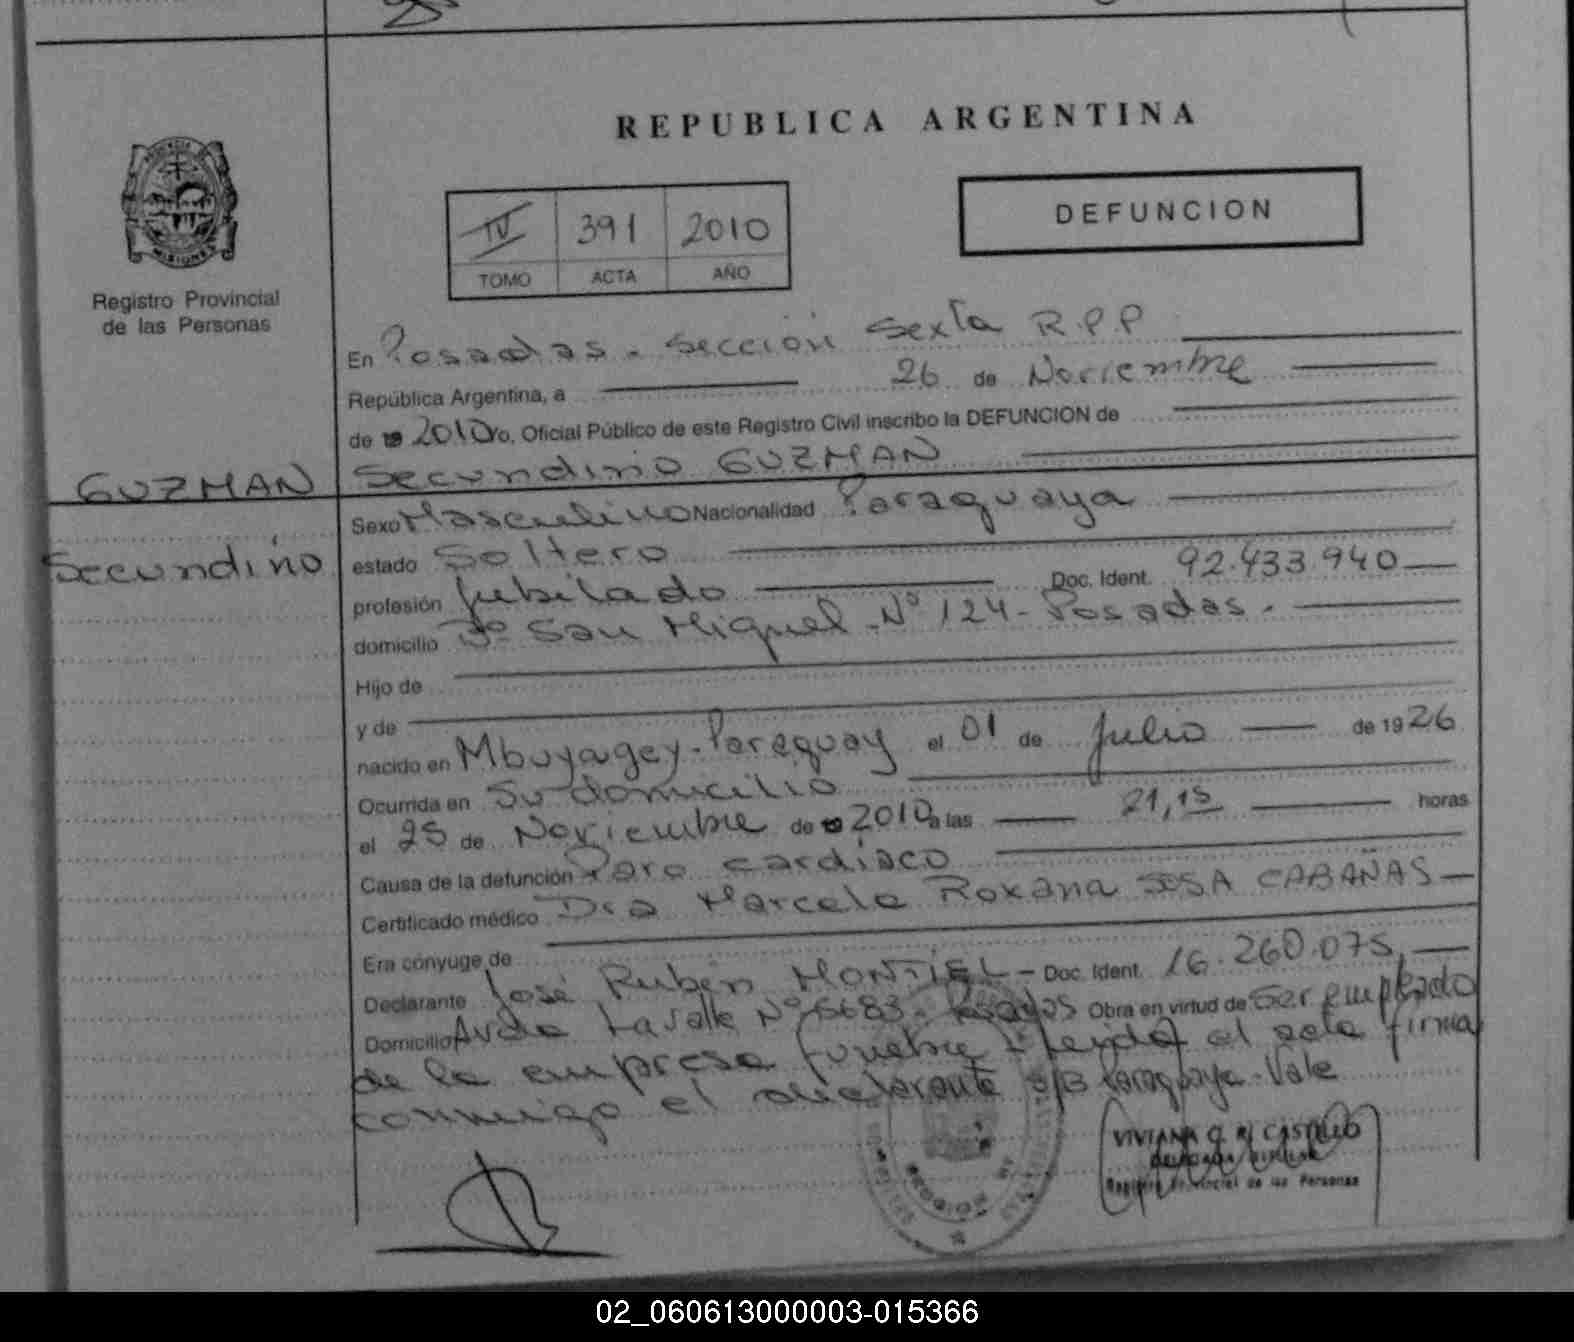 REPUBLICA ARGENTINA
IV 391 2010
TOMO ACTA AÑO
DEFUNCION
Registro Provincial
de las Personas
En Posadas. Sección Sexta R.P.P
República Argentina, a 26 de Noviembre
de 19 2010 Yo, Oficial Público de este Registro Civil inscribo la DEFUNCION de
GUZMAN
Secundino
Secundino GUZMAN
Sexo Masculino Nacionalidad Paraguaya
estado Soltero
profesión Jubilado Doc. Ident. 92.433.940
domicilio Bº San Miguel Nº 124 - Posadas.
Hijo de
y de
nacido en Mbuyagey - Paraguay el 01 de Julio de 1926
Ocurrida en Su domicilio
el 25 de Noviembre de 19 2010 a las 21,15 horas
Causa de la defunción Paro cardíaco
Certificado médico Dra Marcela Roxana SOSA CABAÑAS
Era cónyuge de
Declarante José Rubén MONTIEL - Doc. Ident. 16.260.075
Domicilio Avda Lavalle Nº 5683. Posadas Obra en virtud de Ser empleado
de la empresa fúnebre Leída el acta firma
conmigo el declarante S/B Paraguaya. Vale
VIVIANA G. R. CASTILLO
DELEGADA TITULAR
Registro Provincial de las Personas
02_060613000003-015366